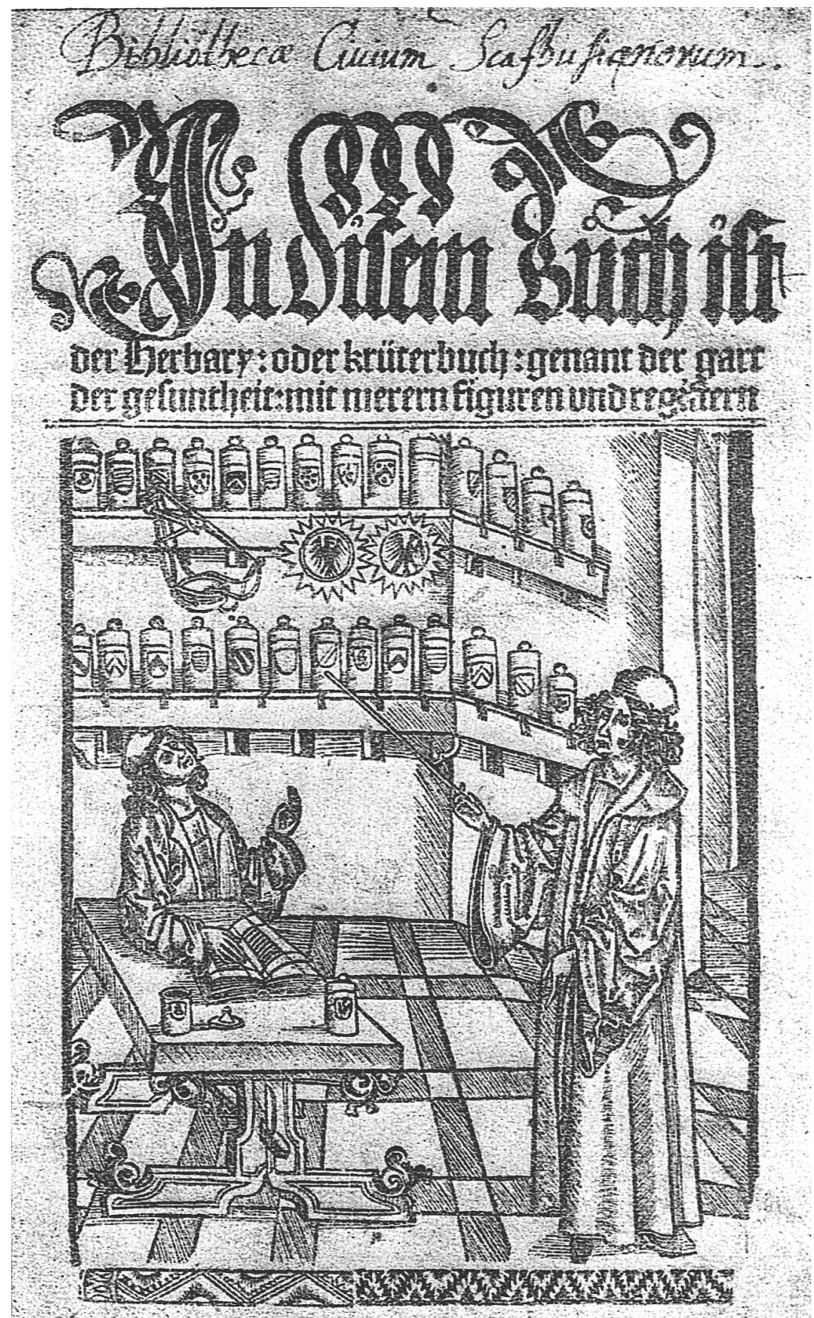 Bibliothecæ Ciuium Scafhusianorum.
In disem Buch ist
der Herbary: oder krüterbuch: genant der gart
der gesuntheit: mit merern figuren vnd registern